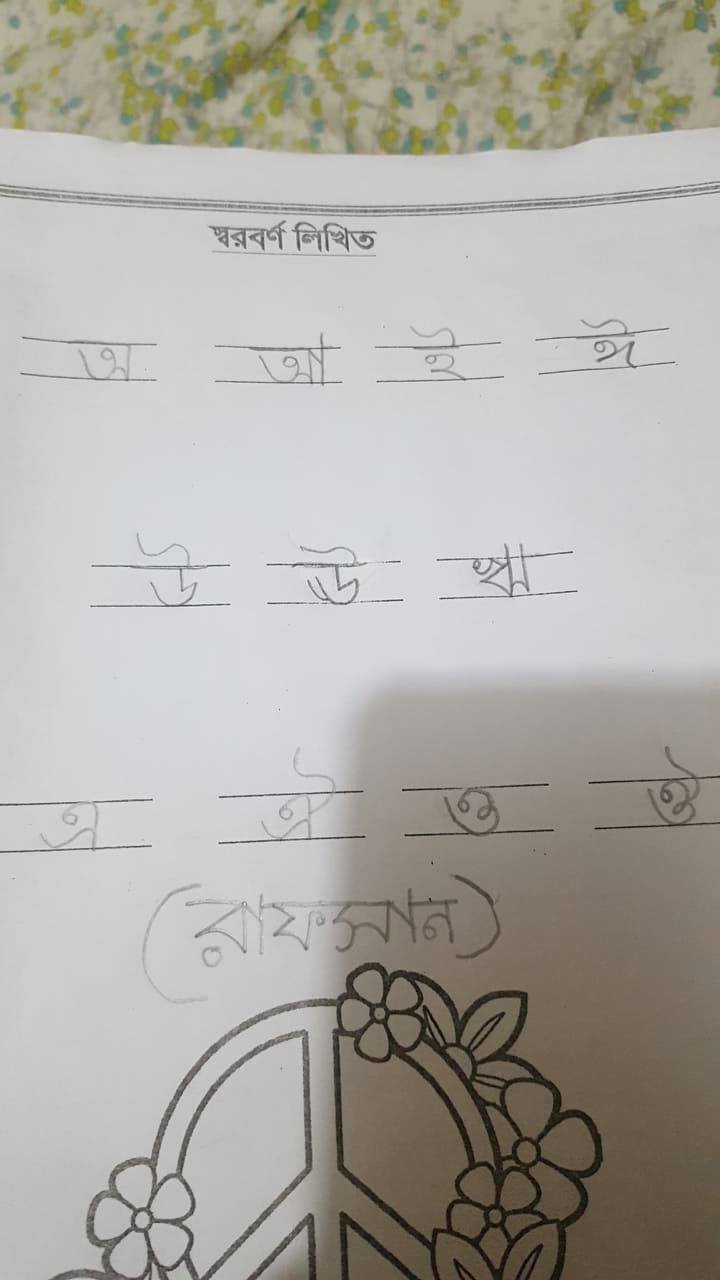 স্বরবর্ণ লিখিত
অ আ ই ঈ
উ ঊ ঋ
এ ঐ ও ঔ
(রাফসান)